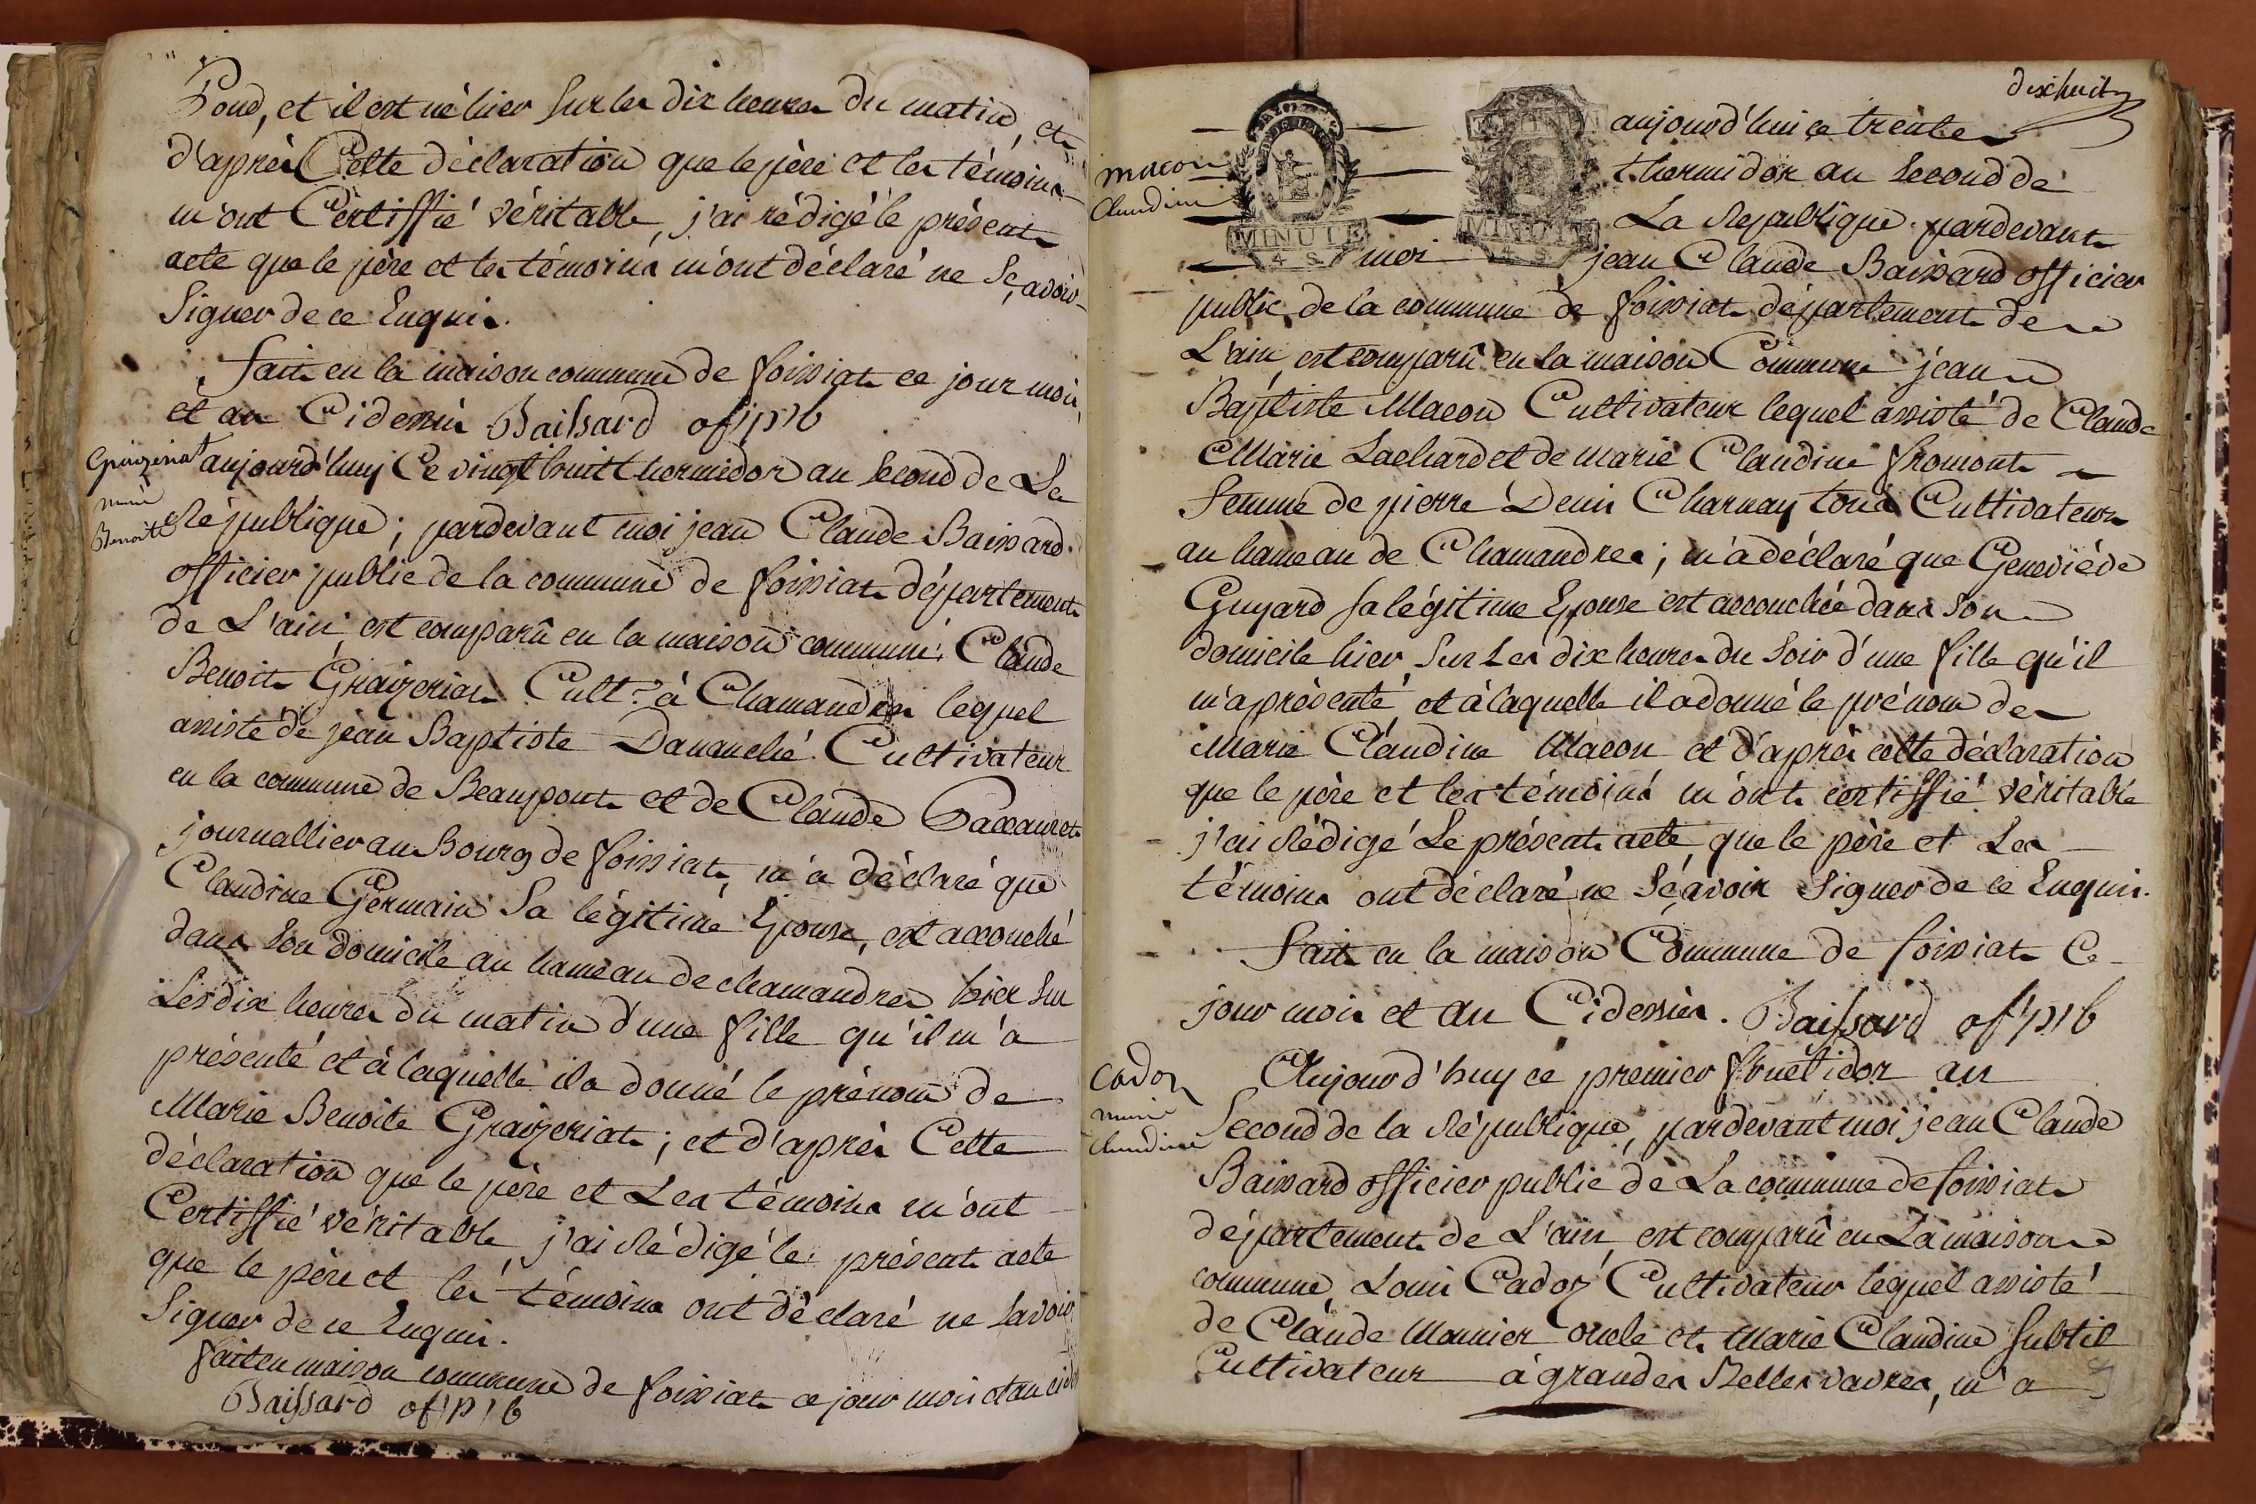 Pond, et il est né hier Sur les dix heures du matin, et
d'après Cette déclaration que le père et les témoins
m'ont Certiffié véritable, j'ai rédigé le présent
acte que le père et les témoins m'ont déclaré ne Sçavoir
Signer de ce Enquis.
fait en la maison commune de foissiat ce jour mois,
et an Cidessus Baissard offi pb
Graizeriat
marie
Benoite
aujourd'huy Ce vingt huit thermidor an Second de La
République; pardevant moi jean Claude Baissard
officier public de la commune de foissiat département
de L'ain, est comparû en la maison commune, Claude
Benoit Graizeriat Cult.r à Chamandres lequel
assisté de jean Baptiste Dananché Cultivateur
en la commune de Beaupont et de Claude Paccauret
journallier au Bourg de foissiat, m'a déclaré que
Claudine Germain Sa légitime Epouse, est accouché
dans Son domicile au hameau de chamandres hier Sur
Les dix heures du matin d'une fille qu'il m'a
présenté et à laquelle il a donné le prénom de
Marie Benoite Graizeriat; et d'après Cette
déclaration que le père et Les témoins m'ont
Certiffié véritable, j'ai Rédigé le présent acte
que le père et les témoins ont déclaré ne Savoir
Signer de ce Enquis.
fait en maison commune de foissiat ce jour mois et an cid
Baissard offi pb
dixhuit
macon
Claudine
MINUTE
4 S
MINUTE
4 S
aujourd'hui ce trente
thermidor an Second de
La Republique pardevant
moi jean Claude Baissard officier
public de la commune de foissiat département de
L'ain, est comparû en la maison Commune jean
Baptiste Macon Cultivateur lequel assisté de Claude
Marie Lachard et de marie Claudine fromont
femme de pierre Denis Charnay tous Cultivateurs
au hameau de Chamandres; m'a déclaré que Geneviève
Guyard Sa légitime Epouse est accouchée dans Son
domicile hier Sur Les dix heures du Soir d'une fille qu'il
m'a présenté et à laquelle il a donné le prénom de
Marie Claudine Macon et d'après cette déclaration
que le père et les témoins m'ont certiffié véritable
j'ai Rédigé Le présent acte que le père et Les
témoins ont déclaré ne Sçavoir Signer de ce Enquis.
Fait en la maison Commune de foissiat Ce
jour mois et an Cidessus. Baissard offi pb
Cadoz
marie
Claudine
Aujourd'huy ce premier fructidor an
Second de la République, pardevant moi jean Claude
Baissard officier public de La commune de foissiat
département de L'ain, est comparû en La maison
commune, Louis Cadoz Cultivateur lequel assisté
de Claude Monnier oncle et Marie Claudine Subtil
Cultivateur à grandes Belles vavres, m'a